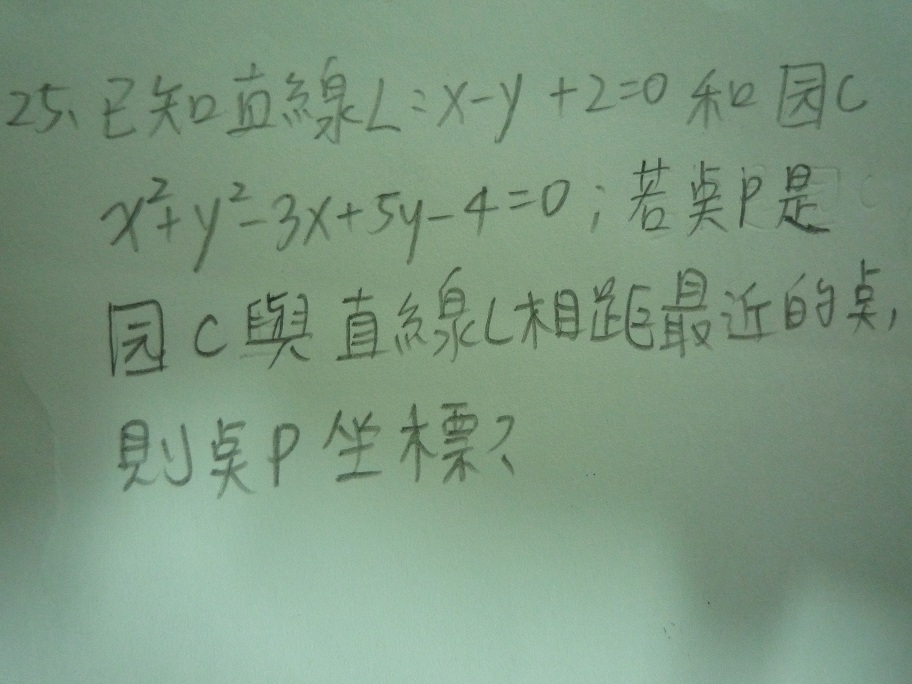 25、已知直線L:x-y+2=0 和园C
x²+y²-3x+5y-4=0;若奌P是
园C與直線L相距最近的奌,
則奌P坐標?